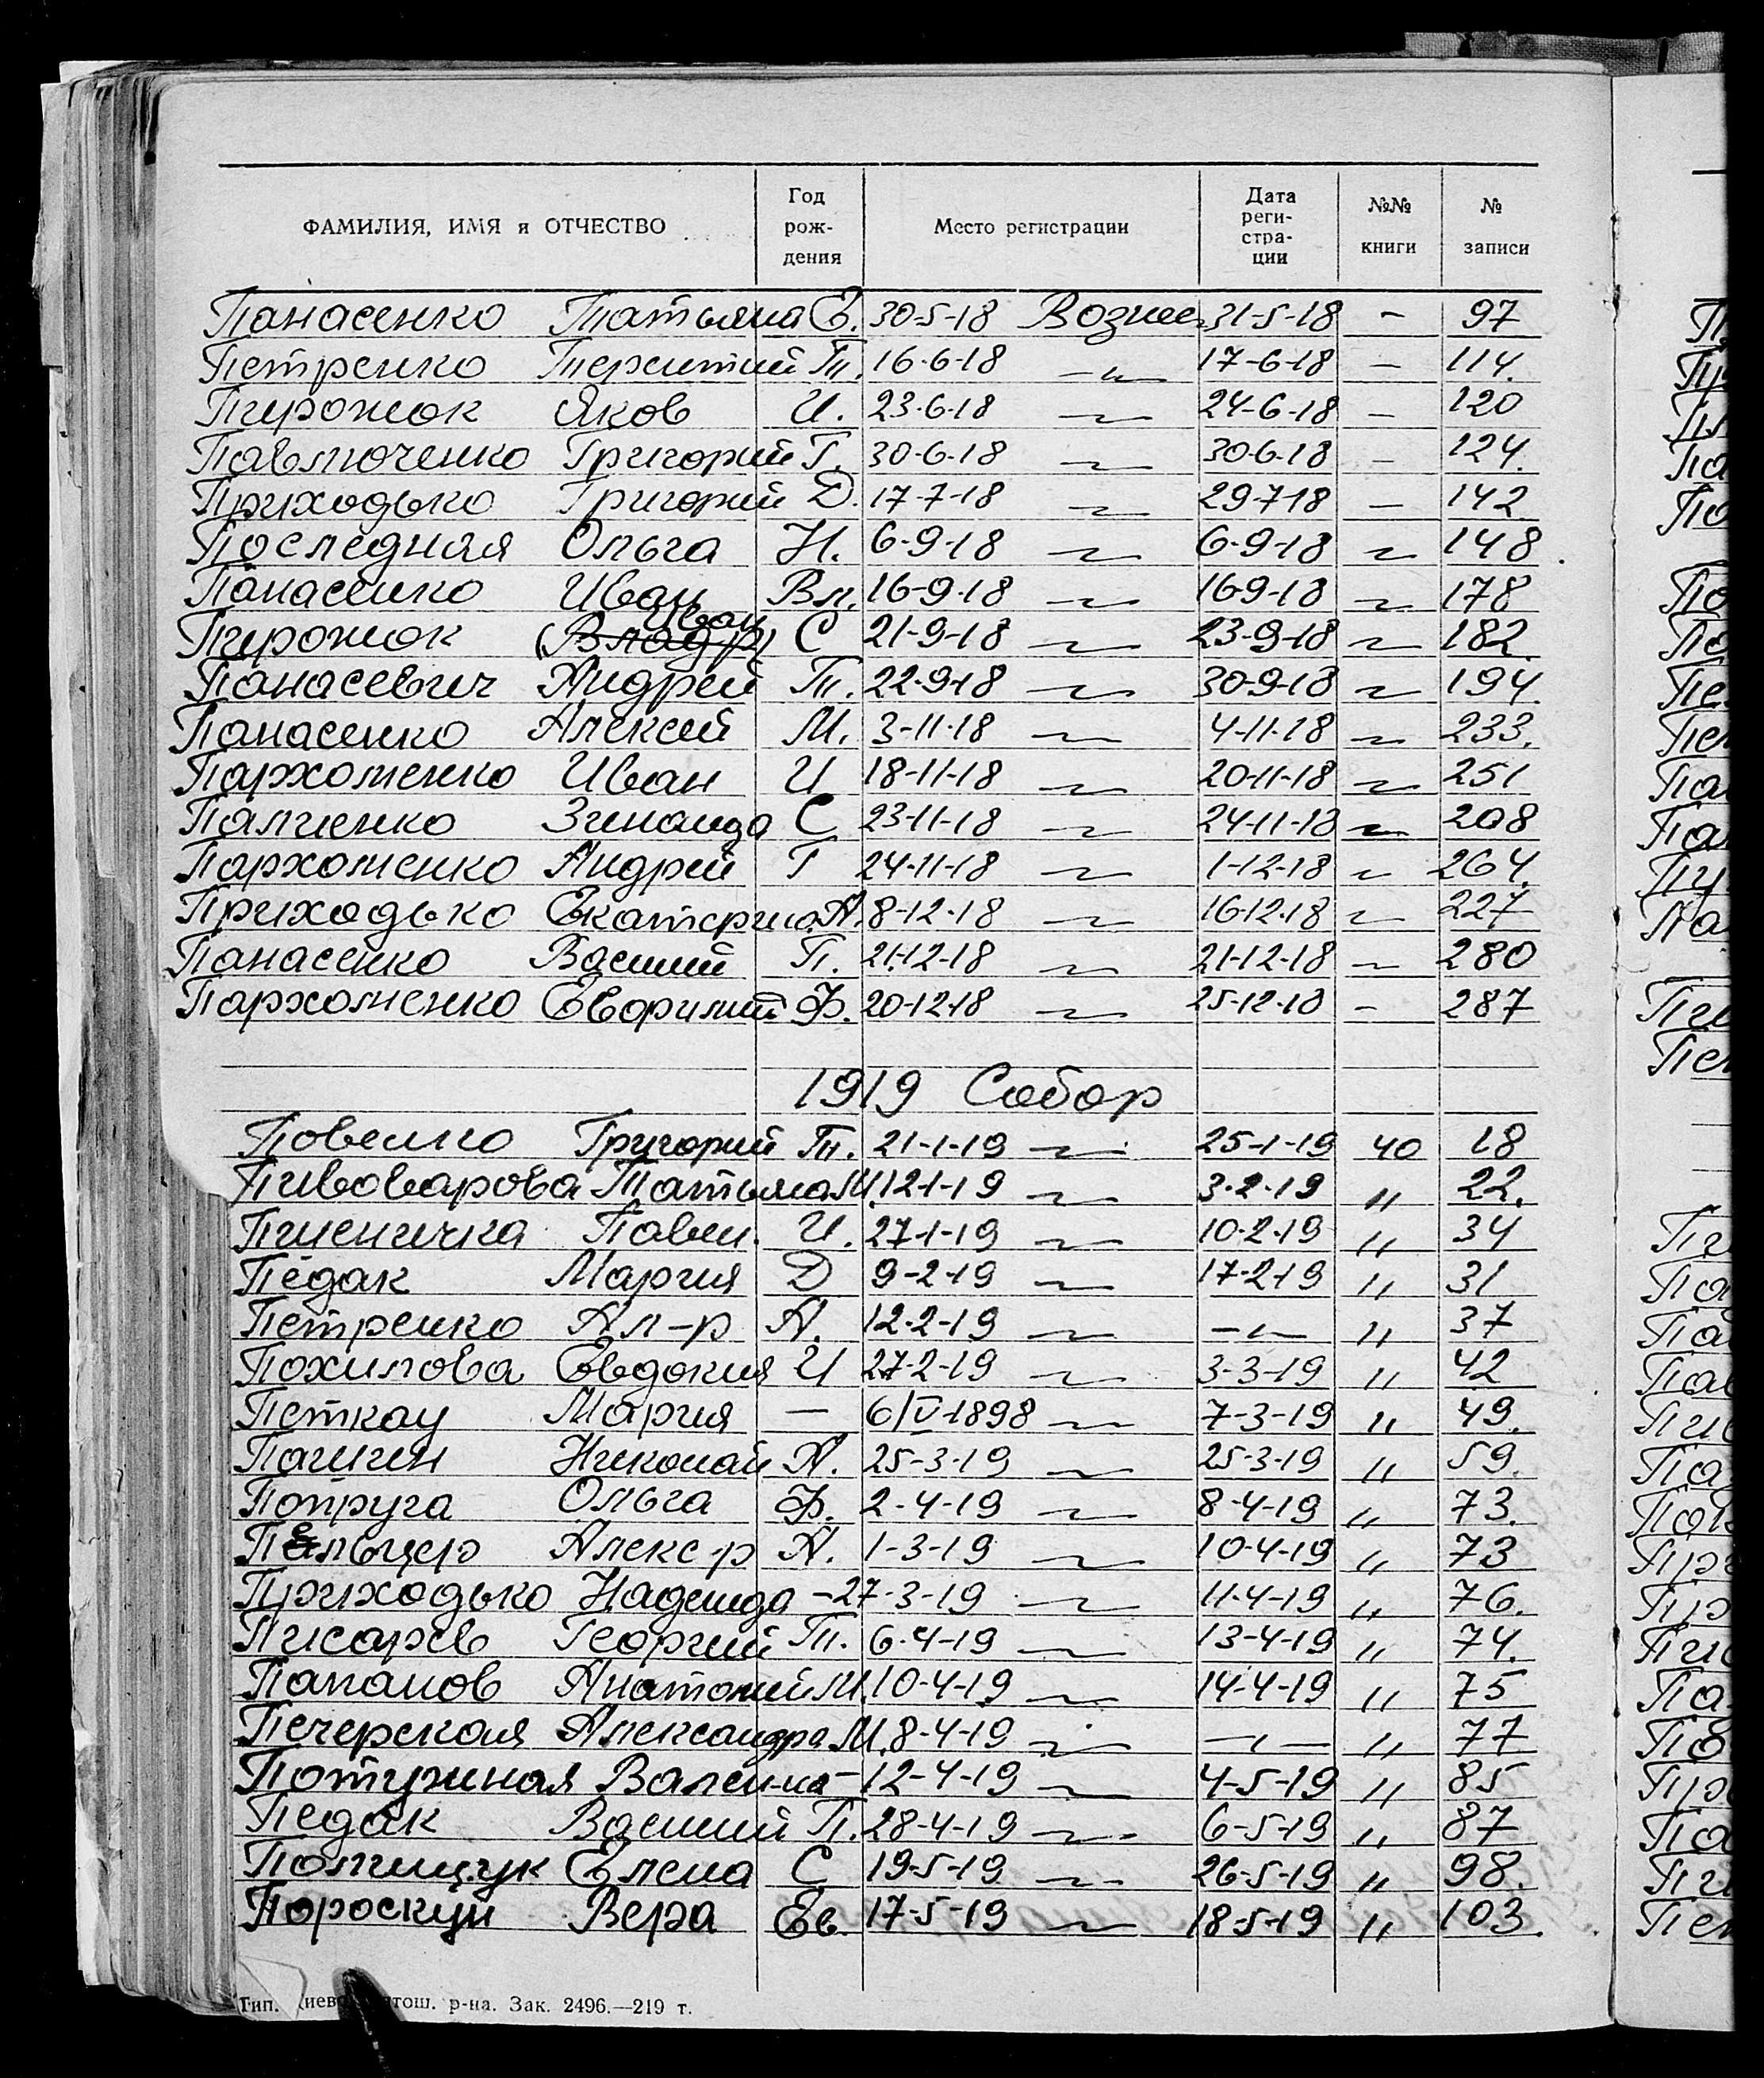 ФАМИЛИЯ, ИМЯ и ОТЧЕСТВО Год рож- дения Место регистрации Дата реги- стра- ции №№ книги № записи
Панасенко Татьяна Е. 30-5-18 Вознес 31-5-18 - 97
Петренко Терентий Т. 16-6-18 -"- 17-6-18 - 114.
Пирожок Яков И. 23-6-18 -"- 24-6-18 - 120
Павлюченко Григорий Г. 30-6-18 -"- 30-6-18 - 124.
Приходько Григорий Д. 17-7-18 -"- 29-7-18 - 142
Последняя Ольга Н. 6-9-18 -"- 6-9-18 -"- 148
Панасенко Иван Вл. 16-9-18 -"- 16-9-18 -"- 178
Иван
Пирожок (Влад-р) С 21-9-18 -"- 23-9-18 -"- 182
Панасевич Андрей Т. 22-9-18 -"- 30-9-18 -"- 194.
Панасенко Алексей М. 3-11-18 -"- 4-11-18 -"- 233.
Пархоменко Иван И 18-11-18 -"- 20-11-18 -"- 251
Палиенко Зинаида С 23-11-18 -"- 24-11-18 -"- 208
Пархоменко Андрей Г 24-11-18 -"- 1-12-18 -"- 264.
Приходько Екатерина А. 8-12-18 -"- 16-12-18 -"- 227
Панасенко Василий П. 21-12-18 -"- 21-12-18 - 280
Пархоменко Ф. 20-12-18 -"- 25-12-18 - 287
1919 Собор
Повенко Григорий Т. 21-1-19 -"- 25-1-19 40 18
Пивоварова Татьяна М. 12-1-19 -"- 3-2-19 " 22.
Пшеничка Павел. И. 27-1-19 -"- 10-2-19 " 34
Педак Мария Д 9-2-19 -"- 17-2-19 " 31
Петренко Ал-р А. 12-2-19 -"- -"- " 37
Похилова Евдокия И 27-2-19 -"- 3-3-19 " 42
Петкау Мария - 6/V-1898 -"- 7-3-19 " 49.
Пашин Николай А. 25-3-19 -"- 25-3-19 " 59.
Попруга Ольга Ф. 2-4-19 -"- 8-4-19 " 73.
Пельцер Алекс-р А. 1-3-19 -"- 10-4-19 " 73
Приходько Надежда - 27-3-19 -"- 11-4-19 " 76.
Писарев Георгий Т. 6-4-19 -"- 13-4-19 " 74.
Папанов Анатолий М. 10-4-19 -"- 14-4-19 " 75
Печерская Александра М. 8-4-19 -"- -"- " 77
Потужная Вален-на - 12-4-19 -"- 4-5-19 " 85
Педак Василий П. 28-4-19 -"- 6-5-19 " 87
Полищук Елена С 19-5-19 -"- 26-5-19 " 98.
Пороскун Вера Ев. 17-5-19 -"- 18-5-19 " 103.
Тип. р-на. Зак. 2496.—219 т.